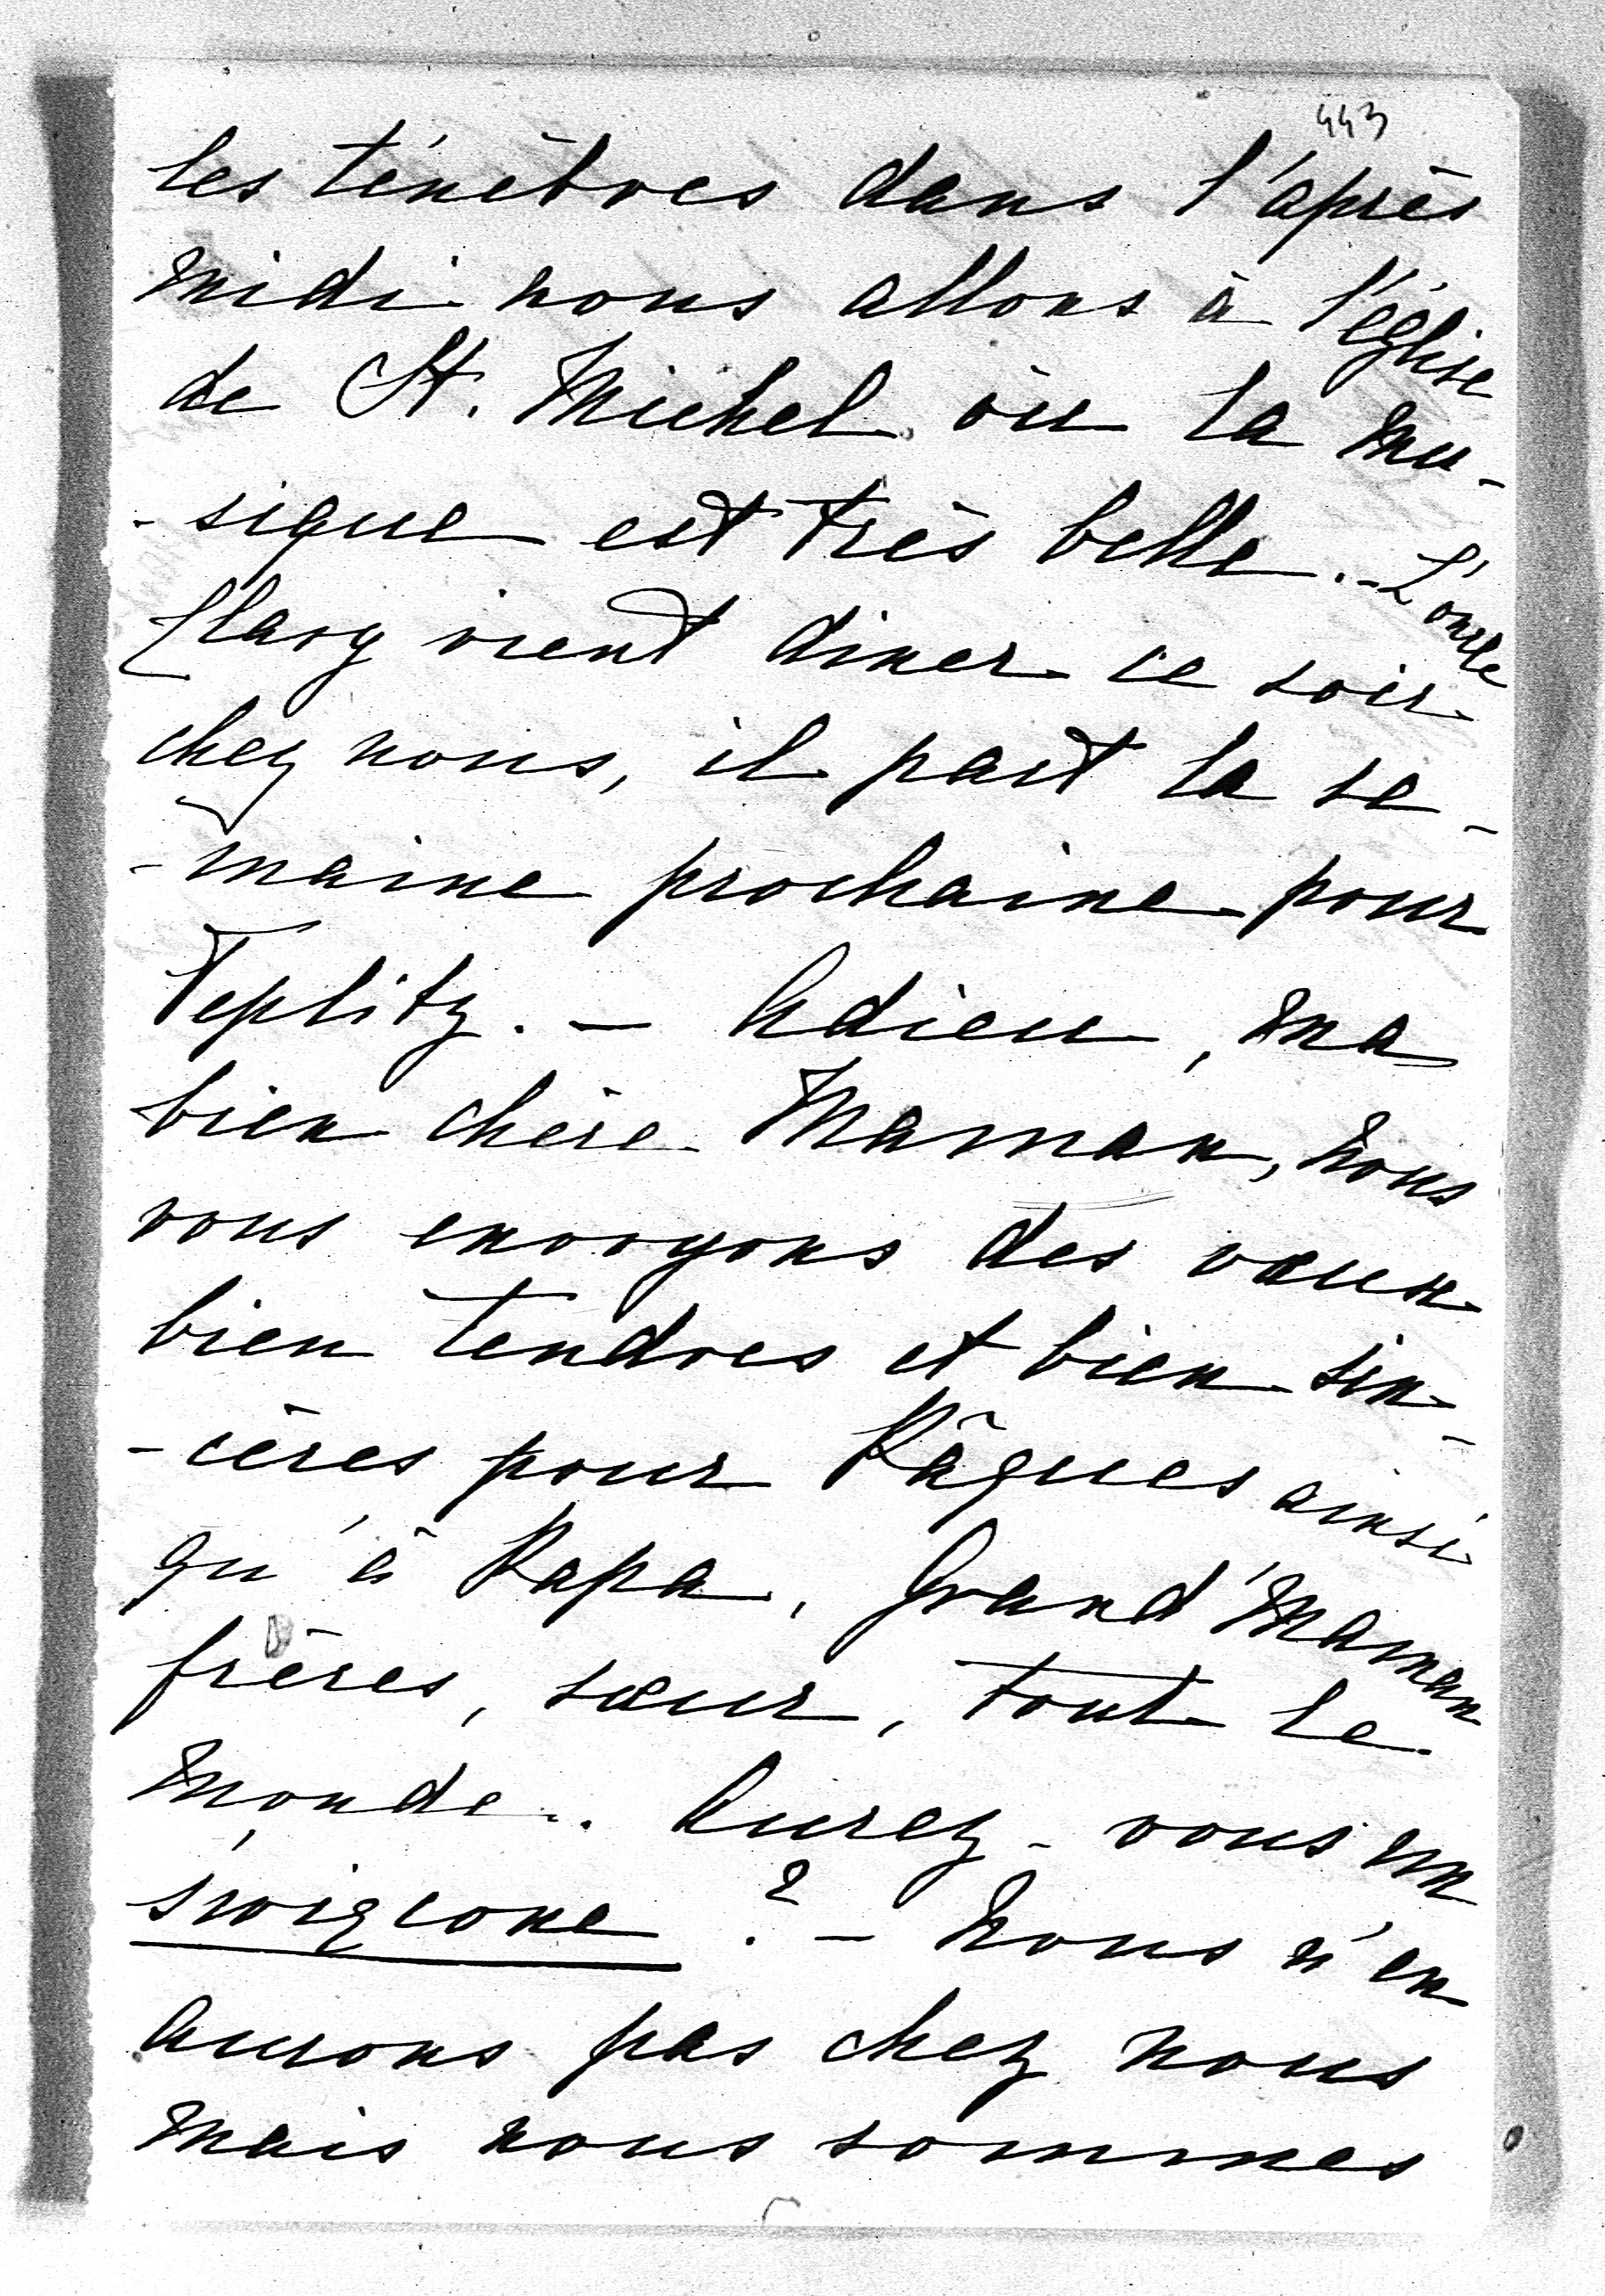 443
les ténèbres dans l'après
midi nous allons à l'église
de St. Michel où la mu-
-sique est très belle. - L'oncle
Clary vient diner ce soir
chez nous, il part la se-
-maine prochaine pour
Teplitz. — Adieu, ma
bien chère Maman, nous
vous envoyons des vœux
bien tendres et bien sin-
-cères pour Pâques ainsi
qu'à Papa, Grand'Maman
frères, sœur, tout le
monde. Aurez-vous un
święcone ? — Nous n'en
aurons pas chez nous
mais nous sommes